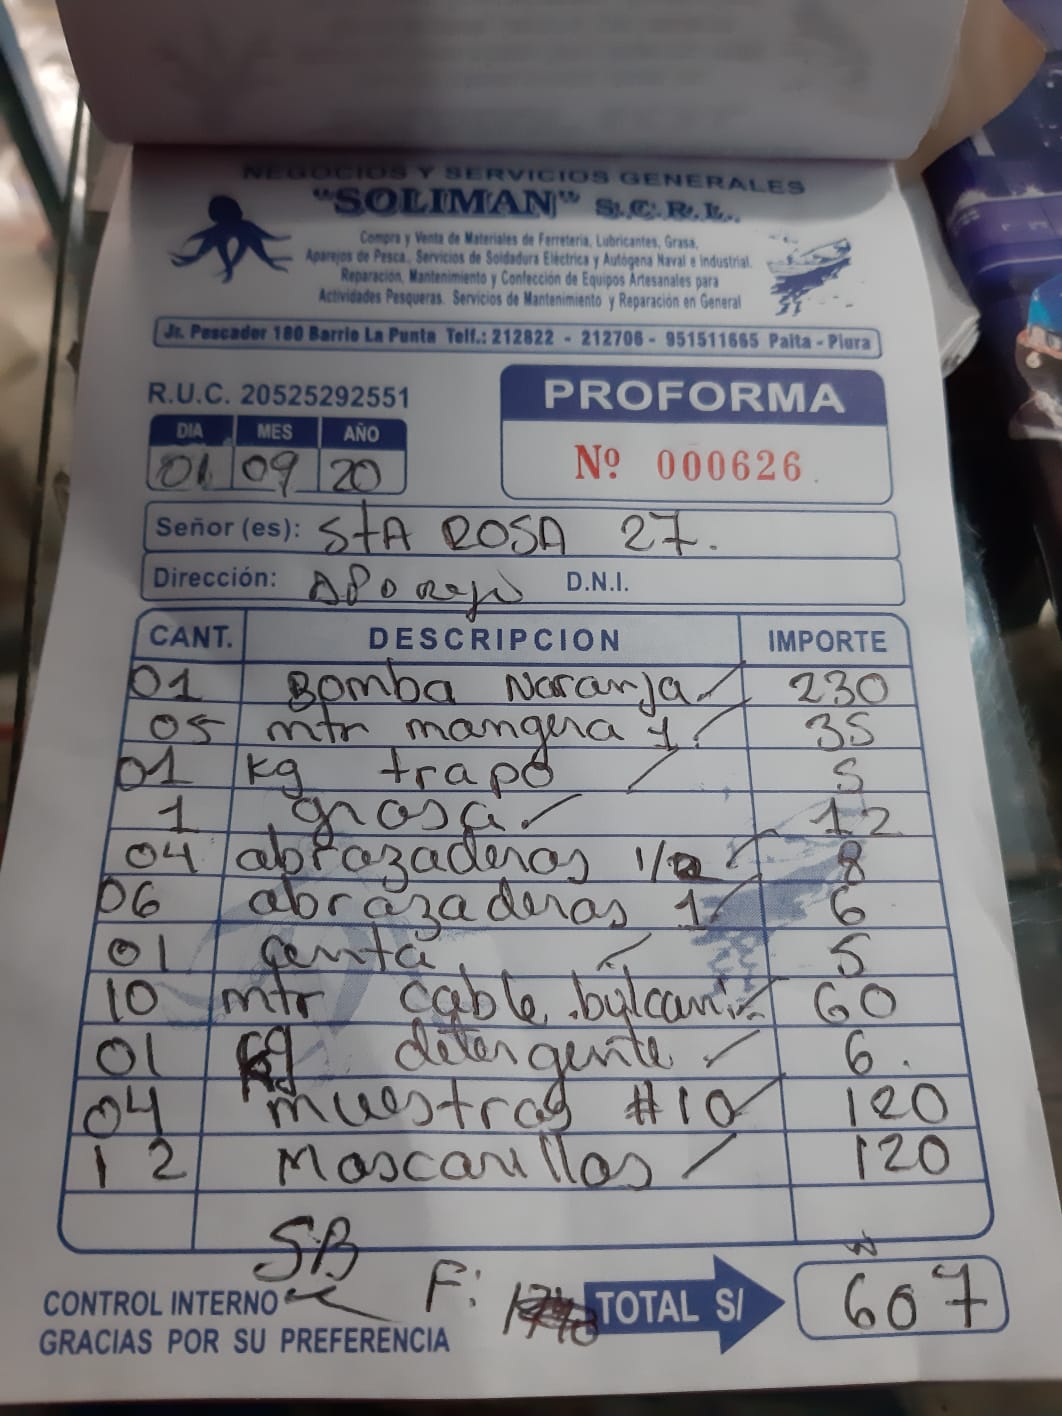 NEGOCIOS Y SERVICIOS GENERALES
"SOLIMAN" S.C.R.L.
Compra y Venta de Materiales de Ferreteria, Lubricantes, Grasa,
Aparejos de Pesca, Servicios de Soldadura Eléctrica y Autógena Naval e Industrial.
Reparación, Mantenimiento y Confección de Equipos Artesanales para
Actividades Pesqueras. Servicios de Mantenimiento y Reparación en General
Jr. Pescador 180 Barrio La Punta Telf.: 212822 - 212706 - 951511665 Paita - Piura
R.U.C. 20525292551
PROFORMA
DIA MES AÑO
01 09 20
Nº 000626
Señor (es): StA ROSA 27.
Dirección: D.N.I.
CANT. DESCRIPCION IMPORTE
01 Bomba Naranja 230
05 mtr mangera 1 35
01 kg trapo 5
1 grasa 12
04 abrazaderas 1/2 8
06 abrazaderas 1 6
01 5
10 mtr cable 60
01 kg detergente 6.
04 muestras #10 120
12 Mascarillas 120
SB
F:
CONTROL INTERNO
GRACIAS POR SU PREFERENCIA
TOTAL S/ 607